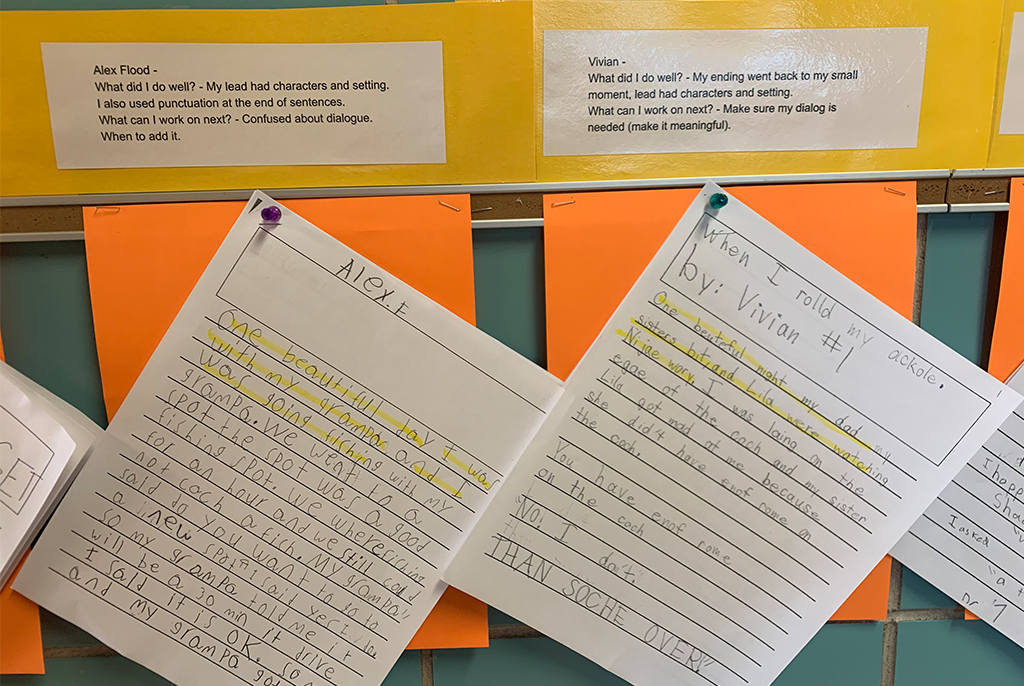 Alex Flood -
What did I do well? - My lead had characters and setting.
I also used punctuation at the end of sentences.
What can I work on next? - Confused about dialogue.
When to add it.
Vivian -
What did I do well? - My ending went back to my small
moment, lead had characters and setting.
What can I work on next? - Make sure my dialog is
needed (make it meaningful).
Alex.F
One beautiful day I was
with my grampa and I
was going fiching with my
grampa. We weat to a
spot the spot was a good
fishing spot. We where ciching
for an hour and we still
not coch a fich. My grampa
said do you want to go to
a new spot? I said yes
so my grampa told me it
will be a 30 min drive
I said it is OK. So
and my grampa got
When I rolld my ackole.
by: Vivian #1
One beuteful night my dad my
sisters and Lila were watching
Nijne wory. I was laing on the
egae of the coch and my sister
Lila got mad at me because
she didt have enof rome on
the coch.
You have enof rome
on the coch
"No! I don't."
THAN SOCHE OVER!"
I hopp
I asked
"a